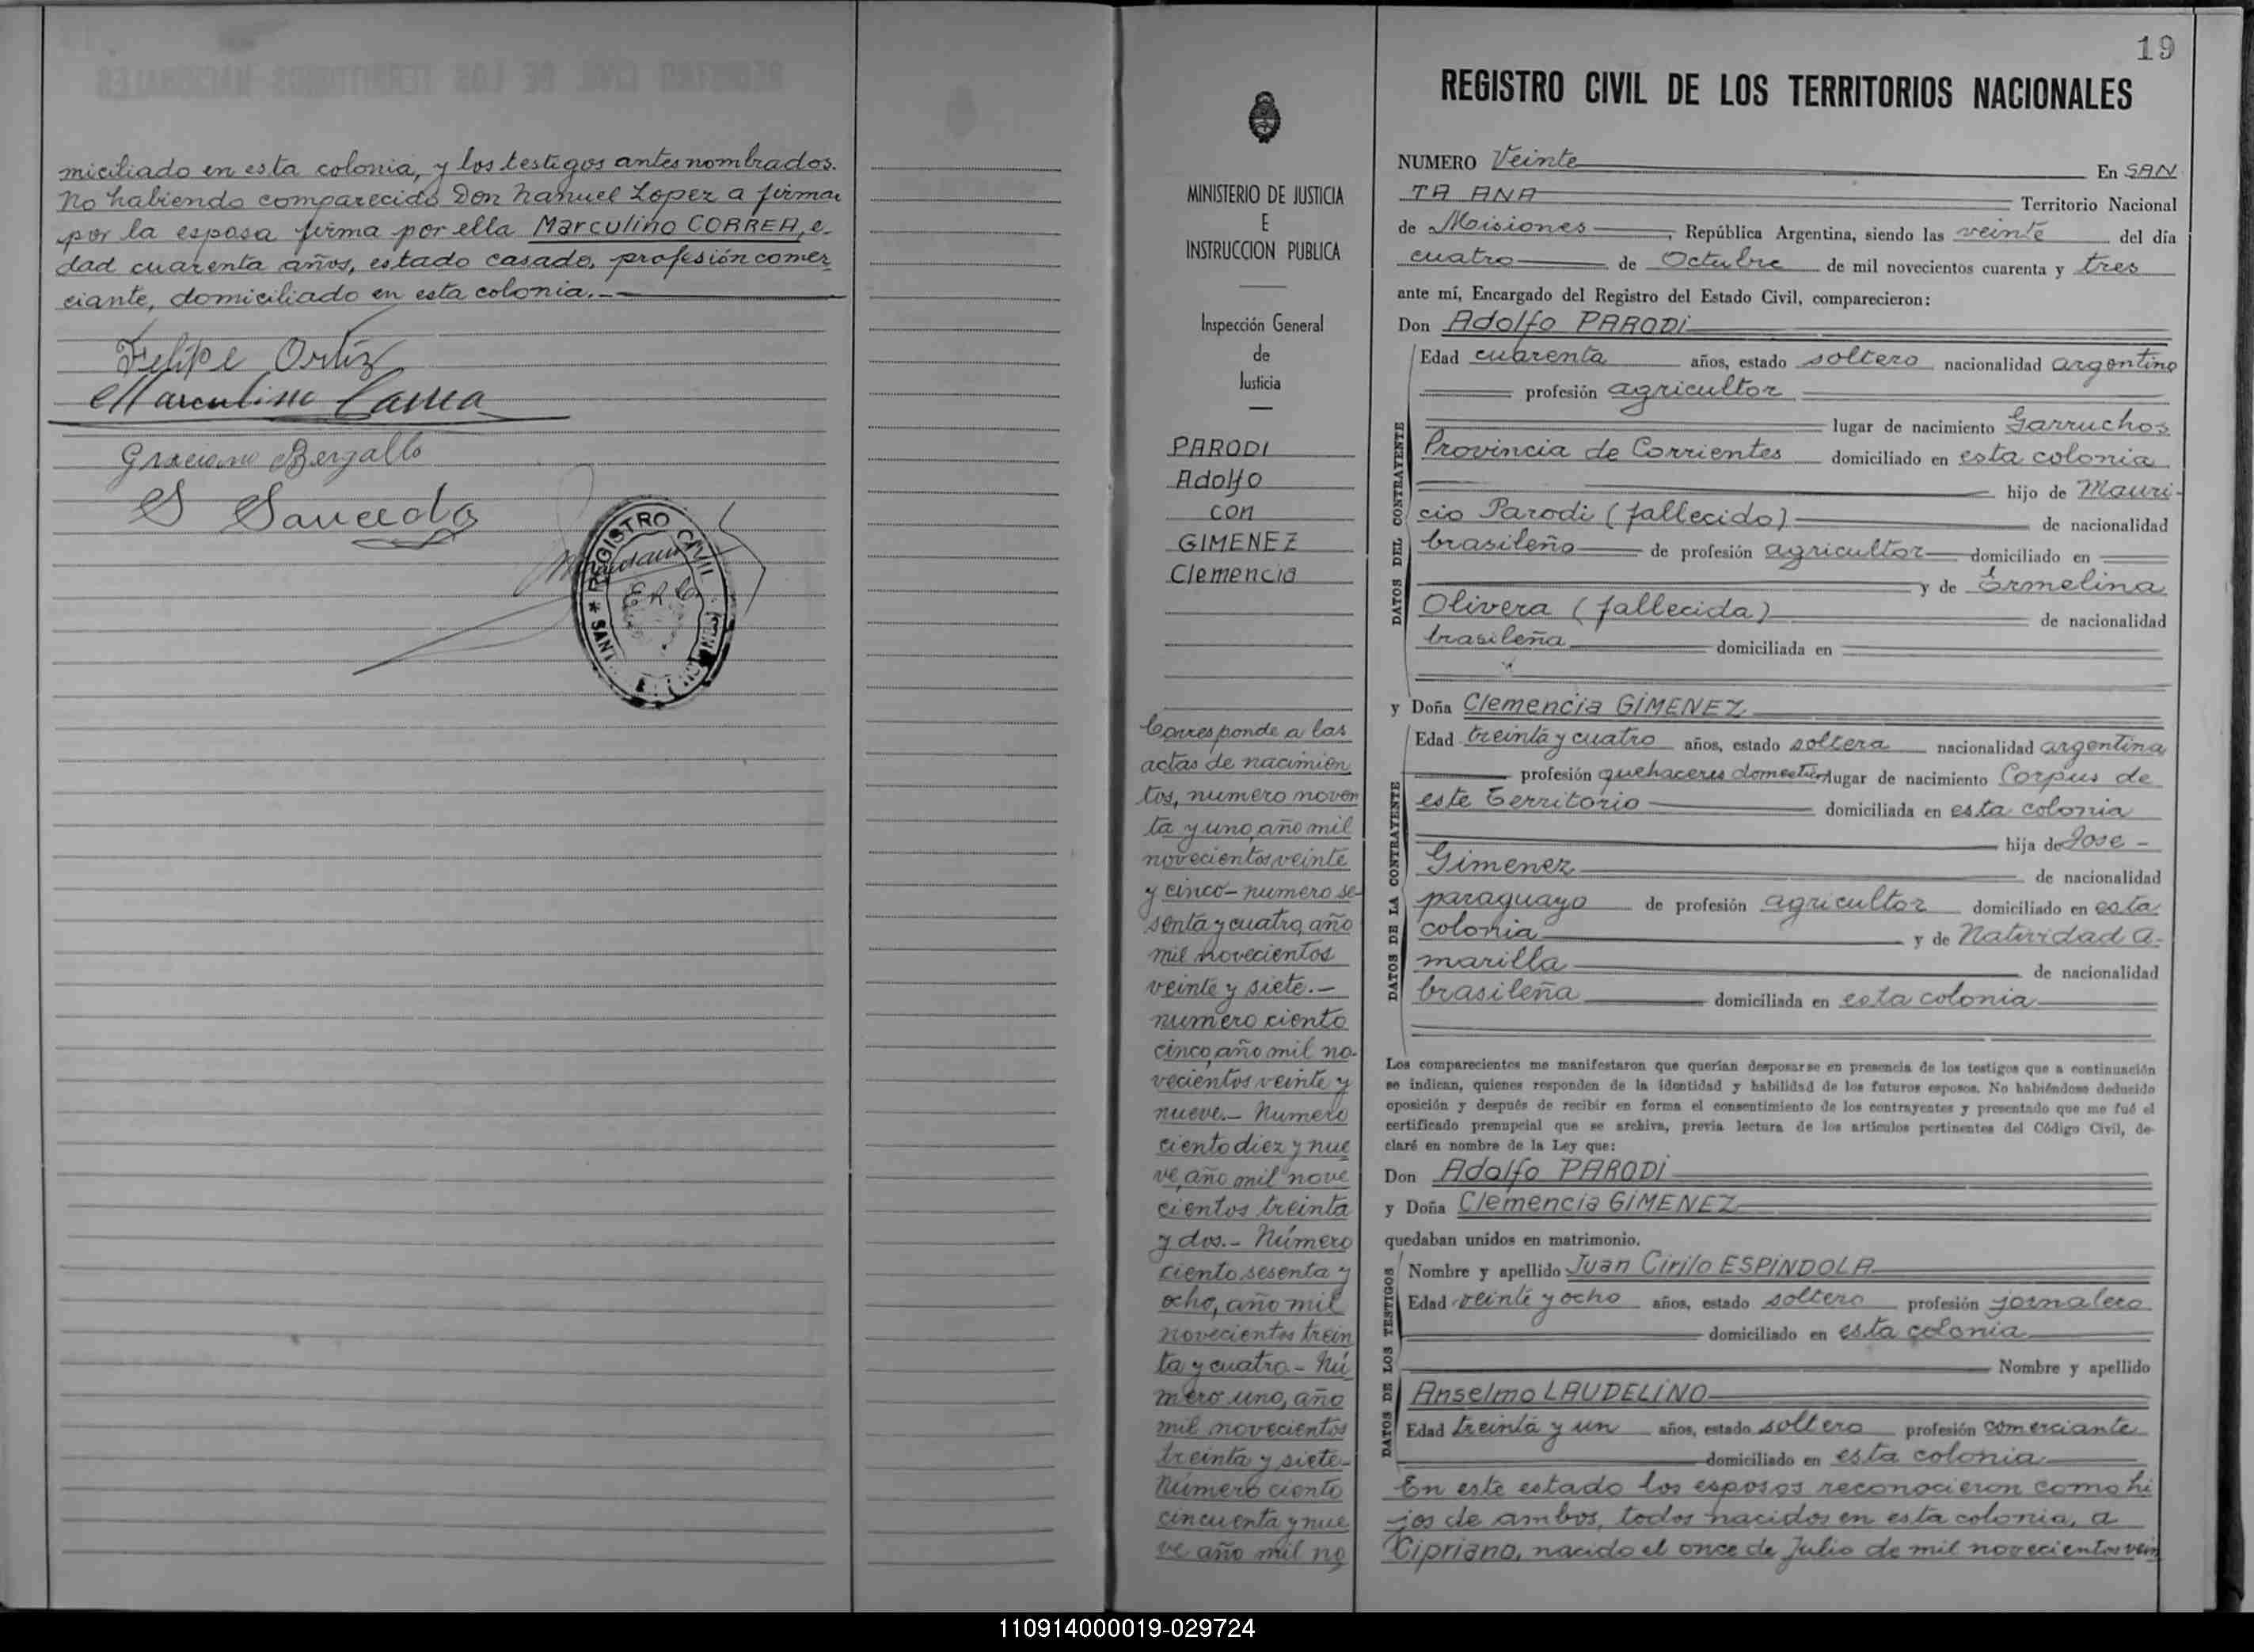 miciliado en esta colonia, y los testigos antes nombrados.
No habiendo comparecido Don Manuel Lopez a firmar
por la esposa firma por ella Marculino CORREA, e-
dad cuarenta años, estado casado, profesión comer
ciante, domiciliado en esta colonia.-
Felipe Ortiz
Graciano Bergallo
S Saucedo
REGISTRO CIVIL
E R C
SANT
19
REGISTRO CIVIL DE LOS TERRITORIOS NACIONALES
MINISTERIO DE JUSTICIA
E
INSTRUCCION PUBLICA
Inspección General
de
Justicia
PARODI
Adolfo
con
GIMENEZ
Clemencia
Corresponde a las
actas de nacimien
tos, numero noven
ta y uno, año mil
novecientos veinte
y cinco - numero se-
senta y cuatro, año
mil novecientos
veinte y siete.-
numero ciento
cinco, año mil no-
vecientos veinte y
nueve.- Numero
ciento diez y nue
ve, año mil nove
cientos treinta
y dos.- Número
ciento sesenta y
ocho, año mil
novecientos trein
ta y cuatro - Nú
mero uno, año
mil novecientos
treinta y siete-
Número ciento
cincuenta y nue
ve año mil no
NUMERO Veinte En SAN
TA ANA Territorio Nacional
de Misiones, República Argentina, siendo las veinte del día
cuatro de Octubre de mil novecientos cuarenta y tres
ante mí, Encargado del Registro del Estado Civil, comparecieron:
Don Adolfo PARODI
DATOS DEL CONTRAYENTE
Edad cuarenta años, estado soltero nacionalidad argentino
profesión agricultor
lugar de nacimiento Garruchos
Provincia de Corrientes domiciliado en esta colonia
hijo de Mauri-
cio Parodi (fallecido) de nacionalidad
brasileño de profesión agricultor domiciliado en
y de Ermelina
Olivera (fallecida) de nacionalidad
brasileña domiciliada en
y Doña Clemencia GIMENEZ
DATOS DE LA CONTRAYENTE
Edad treinta y cuatro años, estado soltera nacionalidad argentina
profesión quehaceres domesticos lugar de nacimiento Corpus de
este territorio domiciliada en esta colonia
hija de Jose -
Gimenez de nacionalidad
paraguayo de profesión agricultor domiciliado en esta
colonia y de Natividad A-
marilla de nacionalidad
brasileña domiciliada en esta colonia
Los comparecientes me manifestaron que querían desposarse en presencia de los testigos que a continuación
se indican, quienes responden de la identidad y habilidad de los futuros esposos. No habiéndose deducido
oposición y después de recibir en forma el consentimiento de los contrayentes y presentado que me fué el
certificado prenupcial que se archiva, previa lectura de los artículos pertinentes del Código Civil, de-
claré en nombre de la Ley que:
Don Adolfo PARODI
y Doña Clemencia GIMENEZ
quedaban unidos en matrimonio.
DATOS DE LOS TESTIGOS
Nombre y apellido Juan Cirilo ESPINDOLA
Edad veinte y ocho años, estado soltero profesión jornalero
domiciliado en esta colonia
Nombre y apellido
Anselmo LAUDELINO
Edad treinta y un años, estado soltero profesión comerciante
domiciliado en esta colonia
En este estado los esposos reconocieron como hi
jos de ambos, todos nacidos en esta colonia, a
Cipriano, nacido el once de Julio de mil novecientos vein
110914000019-029724